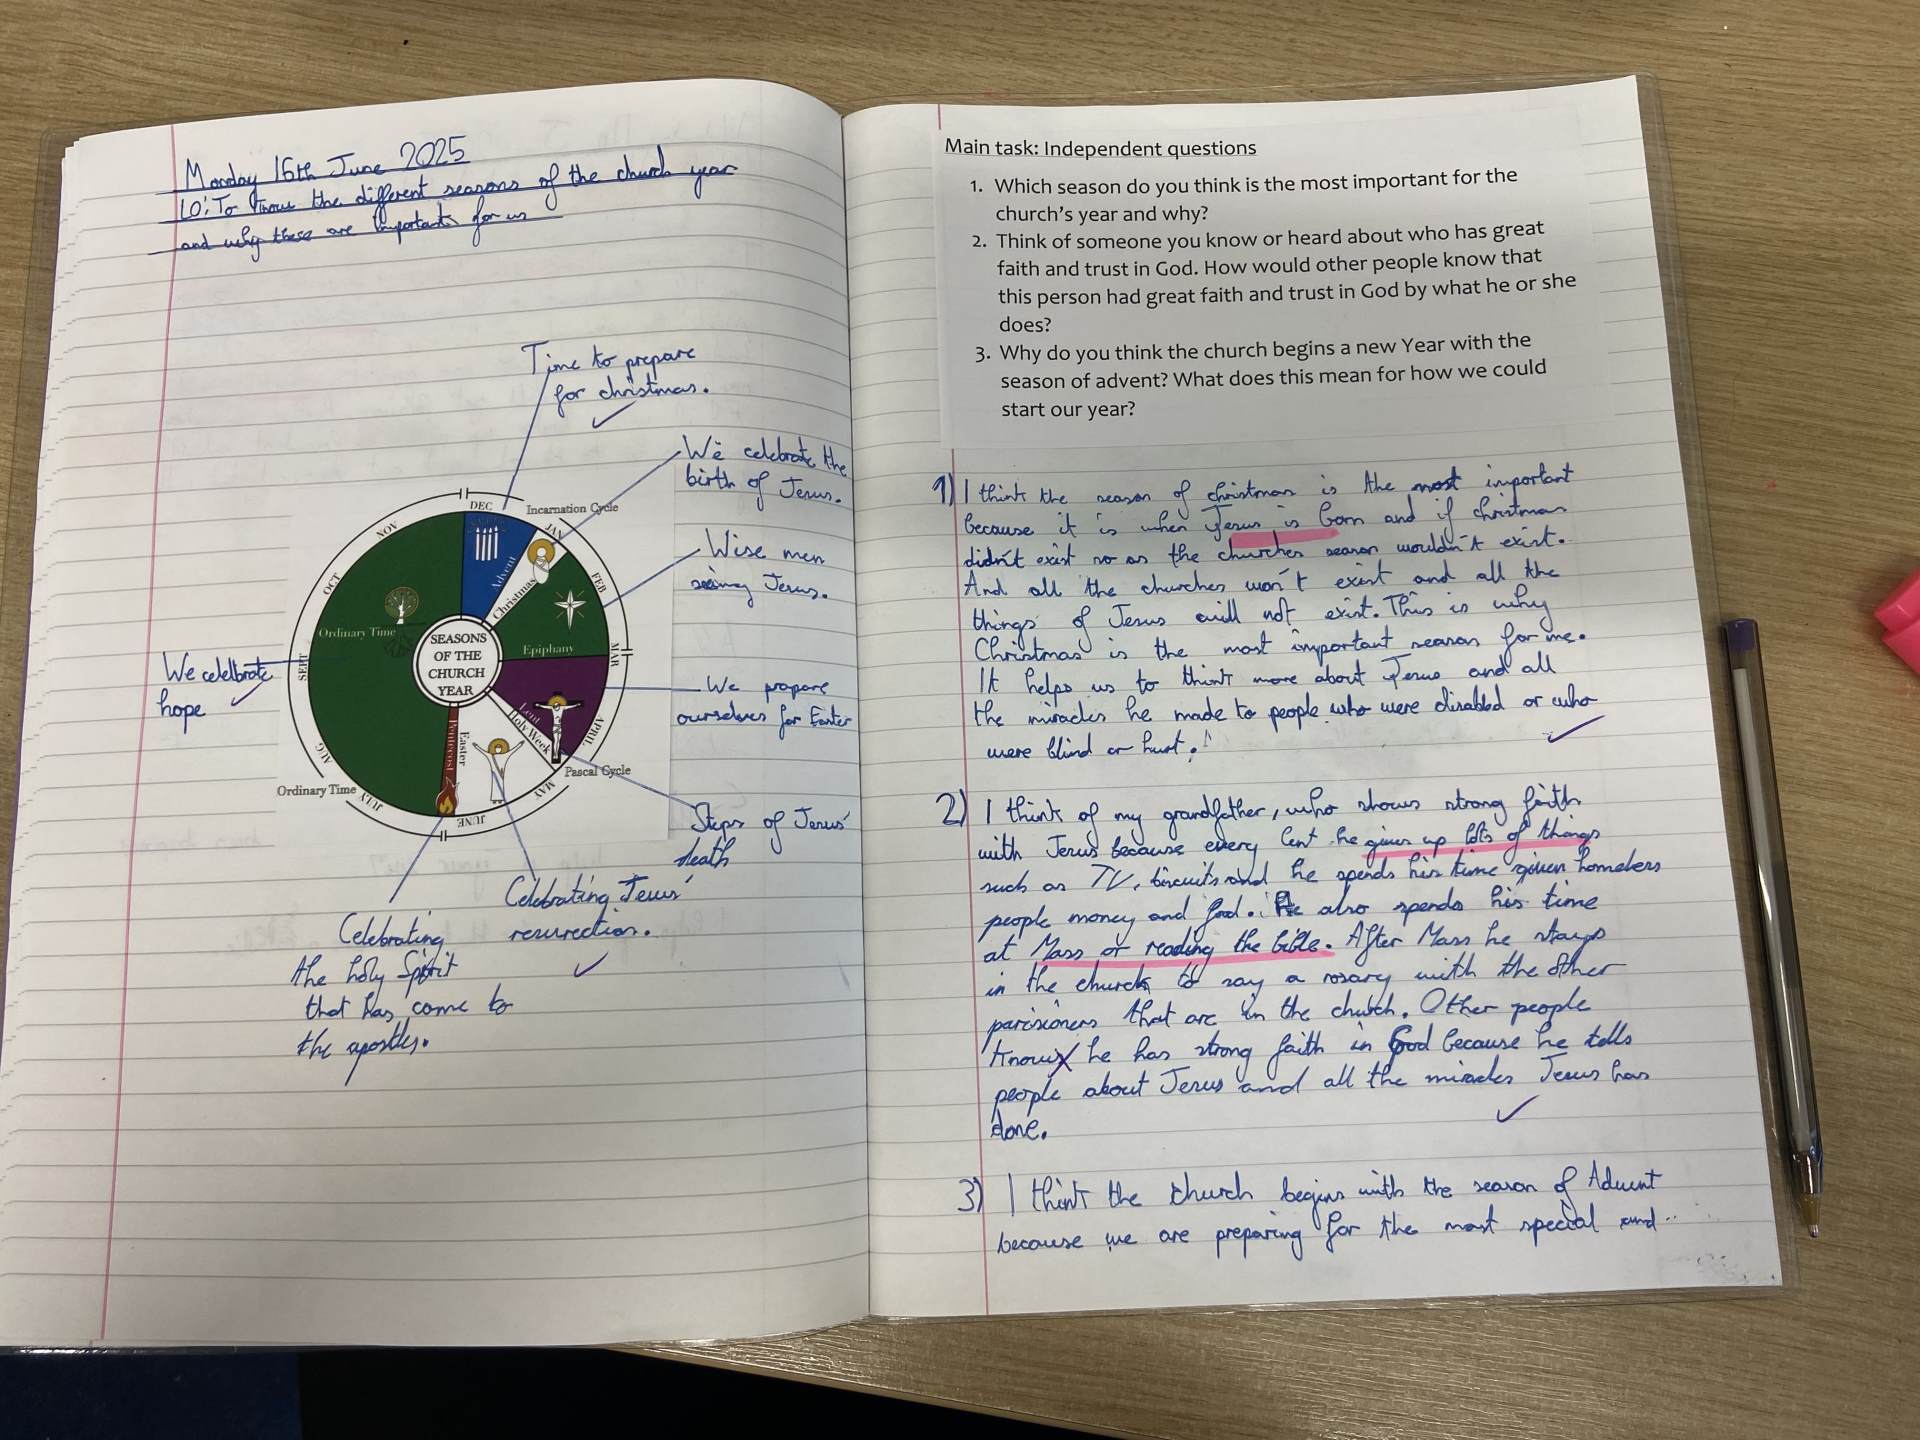 Monday 16th June 2025
LO: To know the different seasons of the church year
and why these are important for us
Time to prepare
for christmas.
We celebrate the
birth of Jesus.
Wise men
seeing Jesus.
We prepare
ourselves for Easter
Steps of Jesus'
death
Celebrating Jesus'
resurrection.
Celebrating
the holy Spirit
that has come to
the apostles.
We celelbrate
hope
SEASONS
OF THE
CHURCH
YEAR
DEC
JAN
FEB
MAR
APRIL
MAY
JUNE
JULY
AUG
SEPT
OCT
NOV
Incarnation Cycle
Advent
Christmas
Epiphany
Lent
Holy Week
Pascal Cycle
Easter
Pentecost
Ordinary Time
Ordinary Time
Main task: Independent questions
1. Which season do you think is the most important for the
church's year and why?
2. Think of someone you know or heard about who has great
faith and trust in God. How would other people know that
this person had great faith and trust in God by what he or she
does?
3. Why do you think the church begins a new Year with the
season of advent? What does this mean for how we could
start our year?
1) I think the season of christmas is the most important
because it is when Jesus is born and if christmas
didn't exist no as the churches season wouldn't exist.
And all the churches won't exist and all the
things of Jesus will not exist. This is why
Christmas is the most important season for me.
It helps us to think more about Jesus and all
the miracles he made to people who were disabled or who
were blind or hurt.
2) I think of my grandfather, who shows strong faith
with Jesus because every lent he gives up lots of things
such as TV, biscuits and he spends his time given homeless
people money and food. He also spends his time
at Mass or reading the bible. After Mass he stays
in the church to say a rosary with the other
parisioners that are in the church. Other people
know he has strong faith in God because he tells
people about Jesus and all the miracles Jesus has
done.
3) I think the church begins with the season of Advent
because we are preparing for the most special and